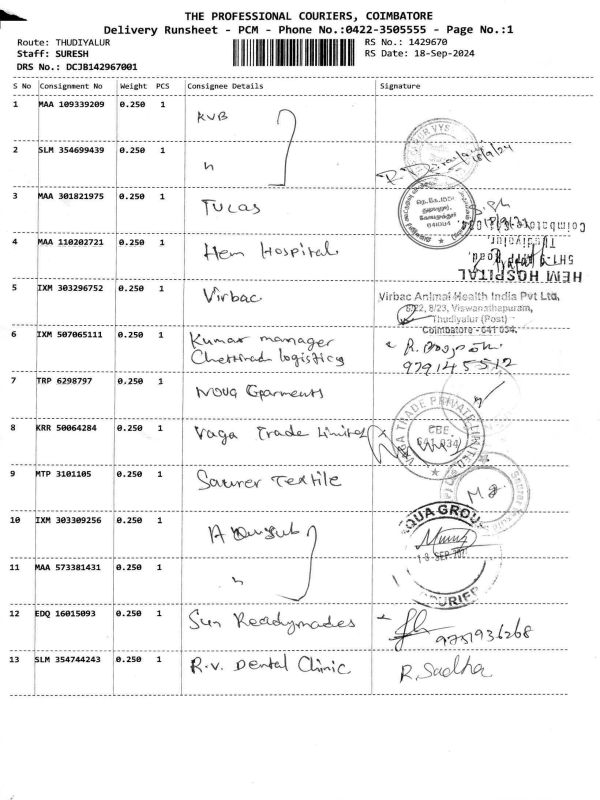 THE PROFESSIONAL COURIERS, COIMBATORE
Delivery Runsheet - PCM - Phone No.:0422-3505555 - Page No.:1
Route: THUDIYALUR
Staff: SURESH
DRS No.: DCJB142967001
RS No.: 1429670
RS Date: 18-Sep-2024
S No Consignment No Weight PCS Consignee Details Signature
1 MAA 109339209 0.250 1 KVB
2 SLM 354699439 0.250 1 "
18/9/24
3 MAA 301821975 0.250 1 TULAS
641034
4 MAA 110202721 0.250 1 Hem Hospital
Coimbatore
Thudiyalur,
Road,
HEM HOSPITAL
5 IXM 303296752 0.250 1 Virbac
Virbac Animal Health India Pvt Ltd,
8/22, 8/23, Viswanathapuram,
Thudiyalur (Post) -
Coimbatore - 641 034.
6 IXM 507065111 0.250 1 Kumar manager
Chettinad logistics
979145512
7 TRP 6298797 0.250 1 Nova Garments
8 KRR 50064284 0.250 1 Vaga Trade Limited
VAGA TRADE PRIVATE LIMITED
CBE
641 034
9 MTP 3101105 0.250 1 Saurer Textile
10 IXM 303309256 0.250 1
AQUA GROUP
18 SEP 202
COURIER
11 MAA 573381431 0.250 1 "
12 EDQ 16015093 0.250 1 Sun Readymades
9751936268
13 SLM 354744243 0.250 1 R.V. Dental Clinic
R. Sadha